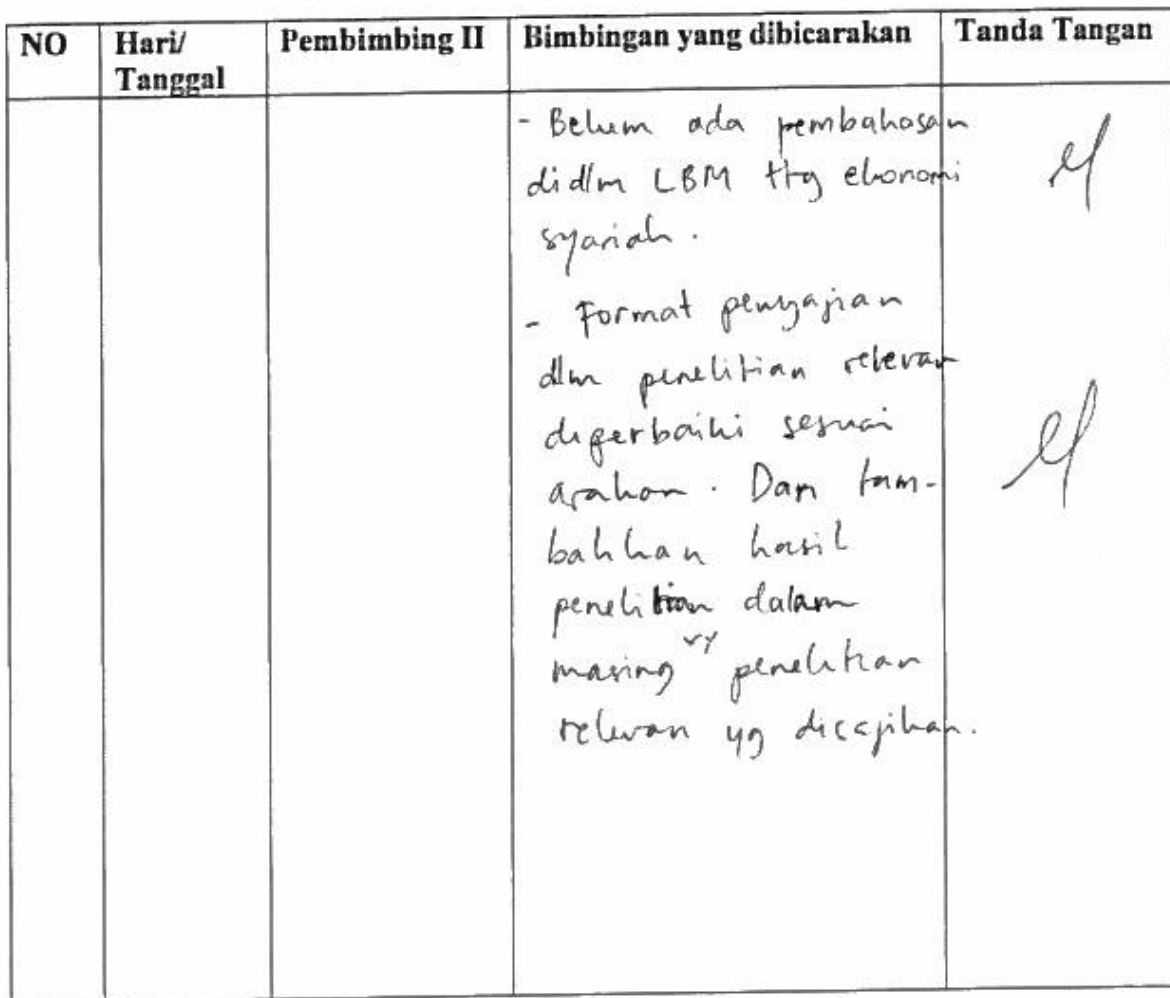 NO Hari/ Pembimbing II Bimbingan yang dibicarakan Tanda Tangan
Tanggal
- Belum ada pembahasan
didlm LBM ttg ekonomi
syariah.
- Format penyajian
dlm penelitian relevan
diperbaiki sesuai
arahan. Dan tam-
bahkan hasil
penelitian dalam
masing penelitian
relevan yg disajikan.